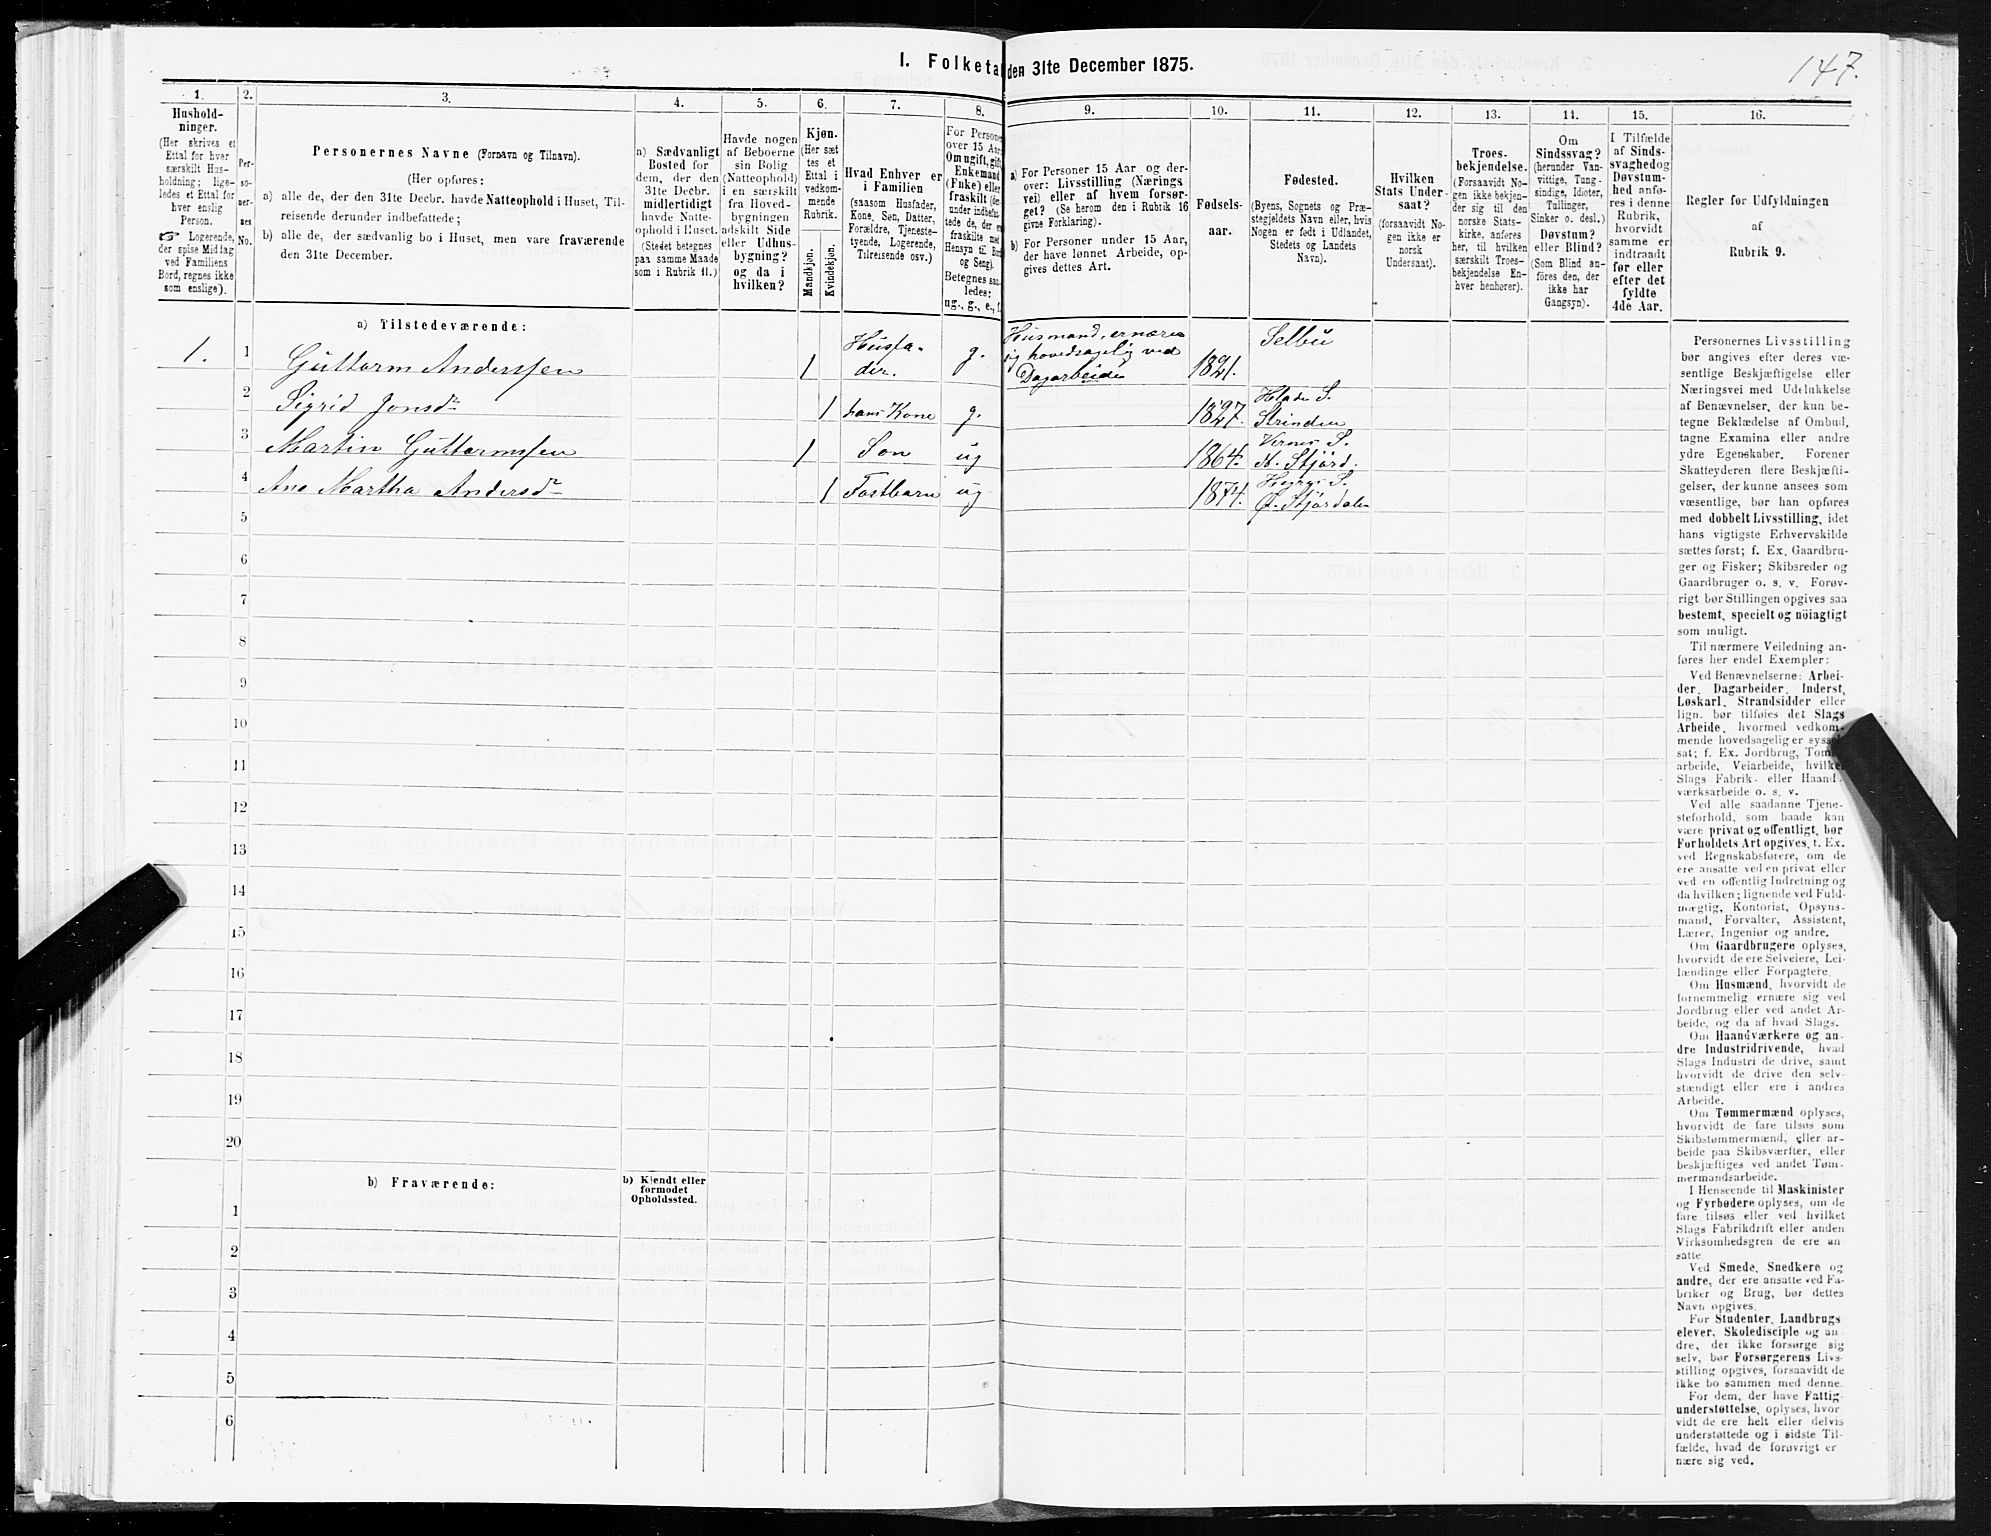 I. Folketa den 31te December 1875.
147.
1.
2.
3.
4.
5.
6.
7.
8.
9.
10.
11.
12.
13.
14.
15.
16.
Hushold-
ninger.
(Her skrives et
Ettal for hver
særskilt Hus-
holdning; lige-
ledes et Ettal for
hver enslig
Person.
☞ Logerende,
der spise Middag
ved Familiens
Bord, regnes ikke
som enslige).
Per-
so-
ner-
nes
No.
Personernes Navne (Fornavn og Tilnavn).
(Her opføres:
a) alle de, der den 31te Decbr. havde Natteophold i Huset, Til-
reisende derunder indbefattede;
b) alle de, der sædvanlig bo i Huset, men vare fraværende
den 31te December.
a) Sædvanligt
Bosted for
dem, der den
31te Decbr.
midlertidigt
havde Natte-
ophold i Huset.
(Stedet betegnes
paa samme Maade
som i Rubrik 11.)
Havde nogen
af Beboerne
sin Bolig
(Natteophold)
i en særskilt
fra Hoved-
bygningen
adskilt Side
eller Udhus-
bygning?
og da i
hvilken?
Kjøn.
(Her sæt
tes et
Ettal i
vedkom-
mende
Rubrik.
Mandkjøn.
Kvindekjøn.
Hvad Enhver er
i Familien
(saasom Husfader,
Kone, Søn, Datter,
Forældre, Tjeneste-
tyende, Logerende,
Tilreisende osv.)
For Persone
over 15 Aar
Om ugift, gift,
Enkemand
(Enke) eller
fraskilt (der-
under indbefat-
tede de, der ere
fraskilte med
Hensyn til Bord
og Seng).
Betegnes saa-
ledes:
ug., g., e., f.
a) For Personer 15 Aar og der-
over: Livsstilling (Nærings
vei) eller af hvem forsør-
get? (Se herom den i Rubrik 16
givne Forklaring).
b) For Personer under 15 Aar,
der have lønnet Arbeide, op-
gives dettes Art.
Fødsels-
aar.
Fødested.
(Byens, Sognets og Præ-
stegjeldets Navn eller, hvis
Nogen er født i Udlandet,
Stedets og Landets
Navn).
Hvilken
Stats Under-
saat?
(forsaavidt No-
gen ikke er
norsk
Undersaat).
Troes-
bekjendelse.
(Forsaavidt No-
gen ikke bekjen-
der sig til den
norske Stats-
kirke, anføres
her, til hvilken
særskilt Troes-
bekjendelse En-
hver henhører).
Om
Sindssvag?
(herunder Van-
vittige, Tung-
sindige, Idioter,
Tullinger,
Sinker o. desl.)
Døvstum?
eller Blind?
(Som Blind an-
føres den, der
ikke har
Gangsyn).
I Tilfælde
af Sinds-
svaghed og
Døvstum-
hed anfø-
res i denne
Rubrik,
hvorvidt
samme er
indtraadt
før eller
efter det
fyldte
4de Aar.
Regler for Udfyldningen
af
Rubrik 9.
a) Tilstedeværende:
1. 1 Guttorm Anderssen 1 Husfa-
der. g. Husmand, ernærer
sig hovedsagelig ved
Dagarbeide 1821. Selbu
2 Sigrid Jonsdr 1 hans Kone g. 1827. Hlade S.
Strinden
3 Martin Guttormssen 1 Søn ug 1864. Vernes S.
N. Stjørd.
4 Ane Martha Andersdr 1 Fostbarn ug. 1874. Hegre S.
Ø. Stjørdalen
5
6
7
8
9
10
11
12
13
14
15
16
17
18
19
20
b) Fraværende:
b) Kjendt eller
formodet
Opholdssted.
1
2
3
4
5
6
Personernes Livsstilling
bør angives efter deres væ-
sentlige Beskjæftigelse eller
Næringsvei med Udelukkelse
af Benævnelser, der kun be-
tegne Beklædelse af Ombud,
tagne Examina eller andre
ydre Egenskaber. Forener
Skatteyderen flere Beskjæfti-
gelser, der kunne ansees som
væsentlige, bør han opføres
med dobbelt Livsstilling, idet
hans vigtigste Erhvervskilde
sættes først; f. Ex. Gaardbru-
ger og Fisker; Skibsreder og
Gaardbruger o. s. v. Forøv-
rigt bør Stillingen opgives saa
bestemt, specielt og nøiagtigt
som muligt.
Til nærmere Veiledning an-
føres her endel Exempler:
Ved Benævnelserne: Arbei-
der, Dagarbeider, Inderst,
Løskarl, Strandsidder eller
lign. bør tilføies det Slags
Arbeide, hvormed vedkom-
mende hovedsagelig er syssel
sat; f. Ex. Jordbrug, Tom
arbeide, Veiarbeide, hvilke
Slags Fabrik- eller Haand-
værksarbeide o. s. v.
Ved alle saadanne Tjene-
steforhold, som baade kan
være privat og offentligt, bør
Forholdets Art opgives, f. Ex.
ved Regnskabsførere, om de
ere ansatte ved en privat eller
ved en offentlig Indretning og
da hvilken; lignende ved Fuld-
mægtig, Kontorist, Opsyns-
mand, Forvalter, Assistent,
Lærer, Ingeniør og andre.
Om Gaardbrugere oplyses,
hvorvidt de ere Selveiere, Lei-
lændinge eller Forpagtere.
Om Husmænd, hvorvidt de
fornemmelig ernære sig ved
Jordbrug eller ved andet Ar-
beide, og da af hvad Slags.
Om Haandværkere og an-
dre Industridrivende, hvad
Slags Industri de drive, samt
hvorvidt de drive den selv-
stændigt eller ere i andres
Arbeide.
Om Tømmermænd oplyses,
hvorvidt de fare tilsøs som
Skibstømmermænd, eller ar-
beide paa Skibsværfter, eller
beskjæftiges ved andet Tøm-
mermandsarbeide.
I Henseende til Maskinister
og Fyrbødere oplyses, om de
fare tilsøs eller ved hvilket
Slags Fabrikdrift eller anden
Virksomhedsgren de ere an-
satte.
Ved Smede, Snedkere og
andre, der ere ansatte ved Fa-
briker og Brug, bør dettes
Navn opgives.
For Studenter, Landbrugs-
elever, Skoledisciple og an-
dre, der ikke forsørge sig
selv, bør Forsørgerens Livs-
stilling opgives, forsaavidt de
ikke bo sammen med denne.
For dem, der have Fattig-
understøttelse, oplyses, hvor-
vidt de ere helt eller delvis
understøttede og i sidste Til-
fælde, hvad de forøvrigt er
nære sig ved.